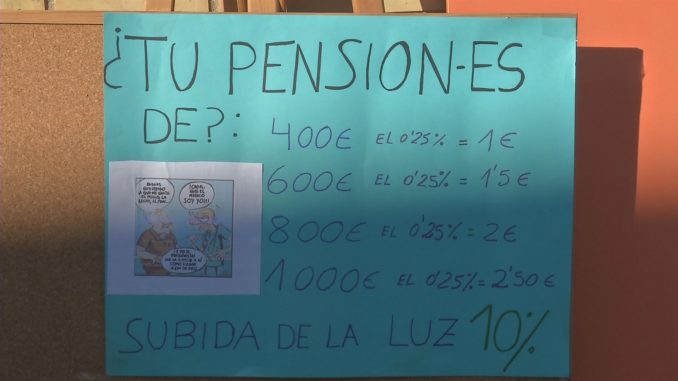 ¿TU PENSION-ES
DE?:
400€ EL 0'25% = 1€
600€ EL 0'25% = 1'5€
800€ EL 0'25% = 2€
1000€ EL 0'25% = 2'50€
¡CALMA,
QUE EL
MÉDICO
SOY YO!!!
SUBIDA DE LA LUZ 10%